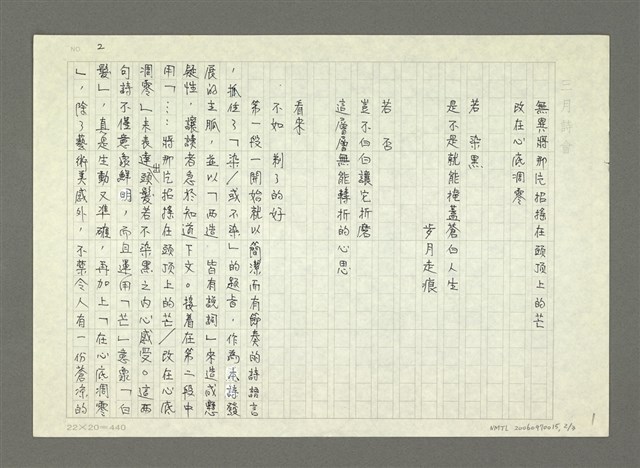 無異將那片招搖在頭頂上的芒
改在心底凋零
若 染黑
是不是就能掩蓋蒼白人生
歲月走痕
若 否
豈不白白讓它折磨
這層層無能轉折的心思
看來
不如 剃了的好
第一段一開始就以簡潔而有節奏的詩語言
，抓住了「染/或不染」的題旨，作為本詩發
展的主脈，並以「兩造 皆有說詞」來造成懸
疑性，讓讀者急於知道下文。接着在第二段中
用「……將那片招搖在頭頂上的芒/改在心底
凋零」來表達出頭髮若不染黑之內心感受。這兩
句詩不僅意象鮮明，而且運用「芒」意象「白
髮」，真是生動又準確，再加上「在心底凋零
」，除了藝術美感外，不禁令人有一份蒼涼的
NO. 2
22×20=440
NMTL 20060470015, 2/3
1